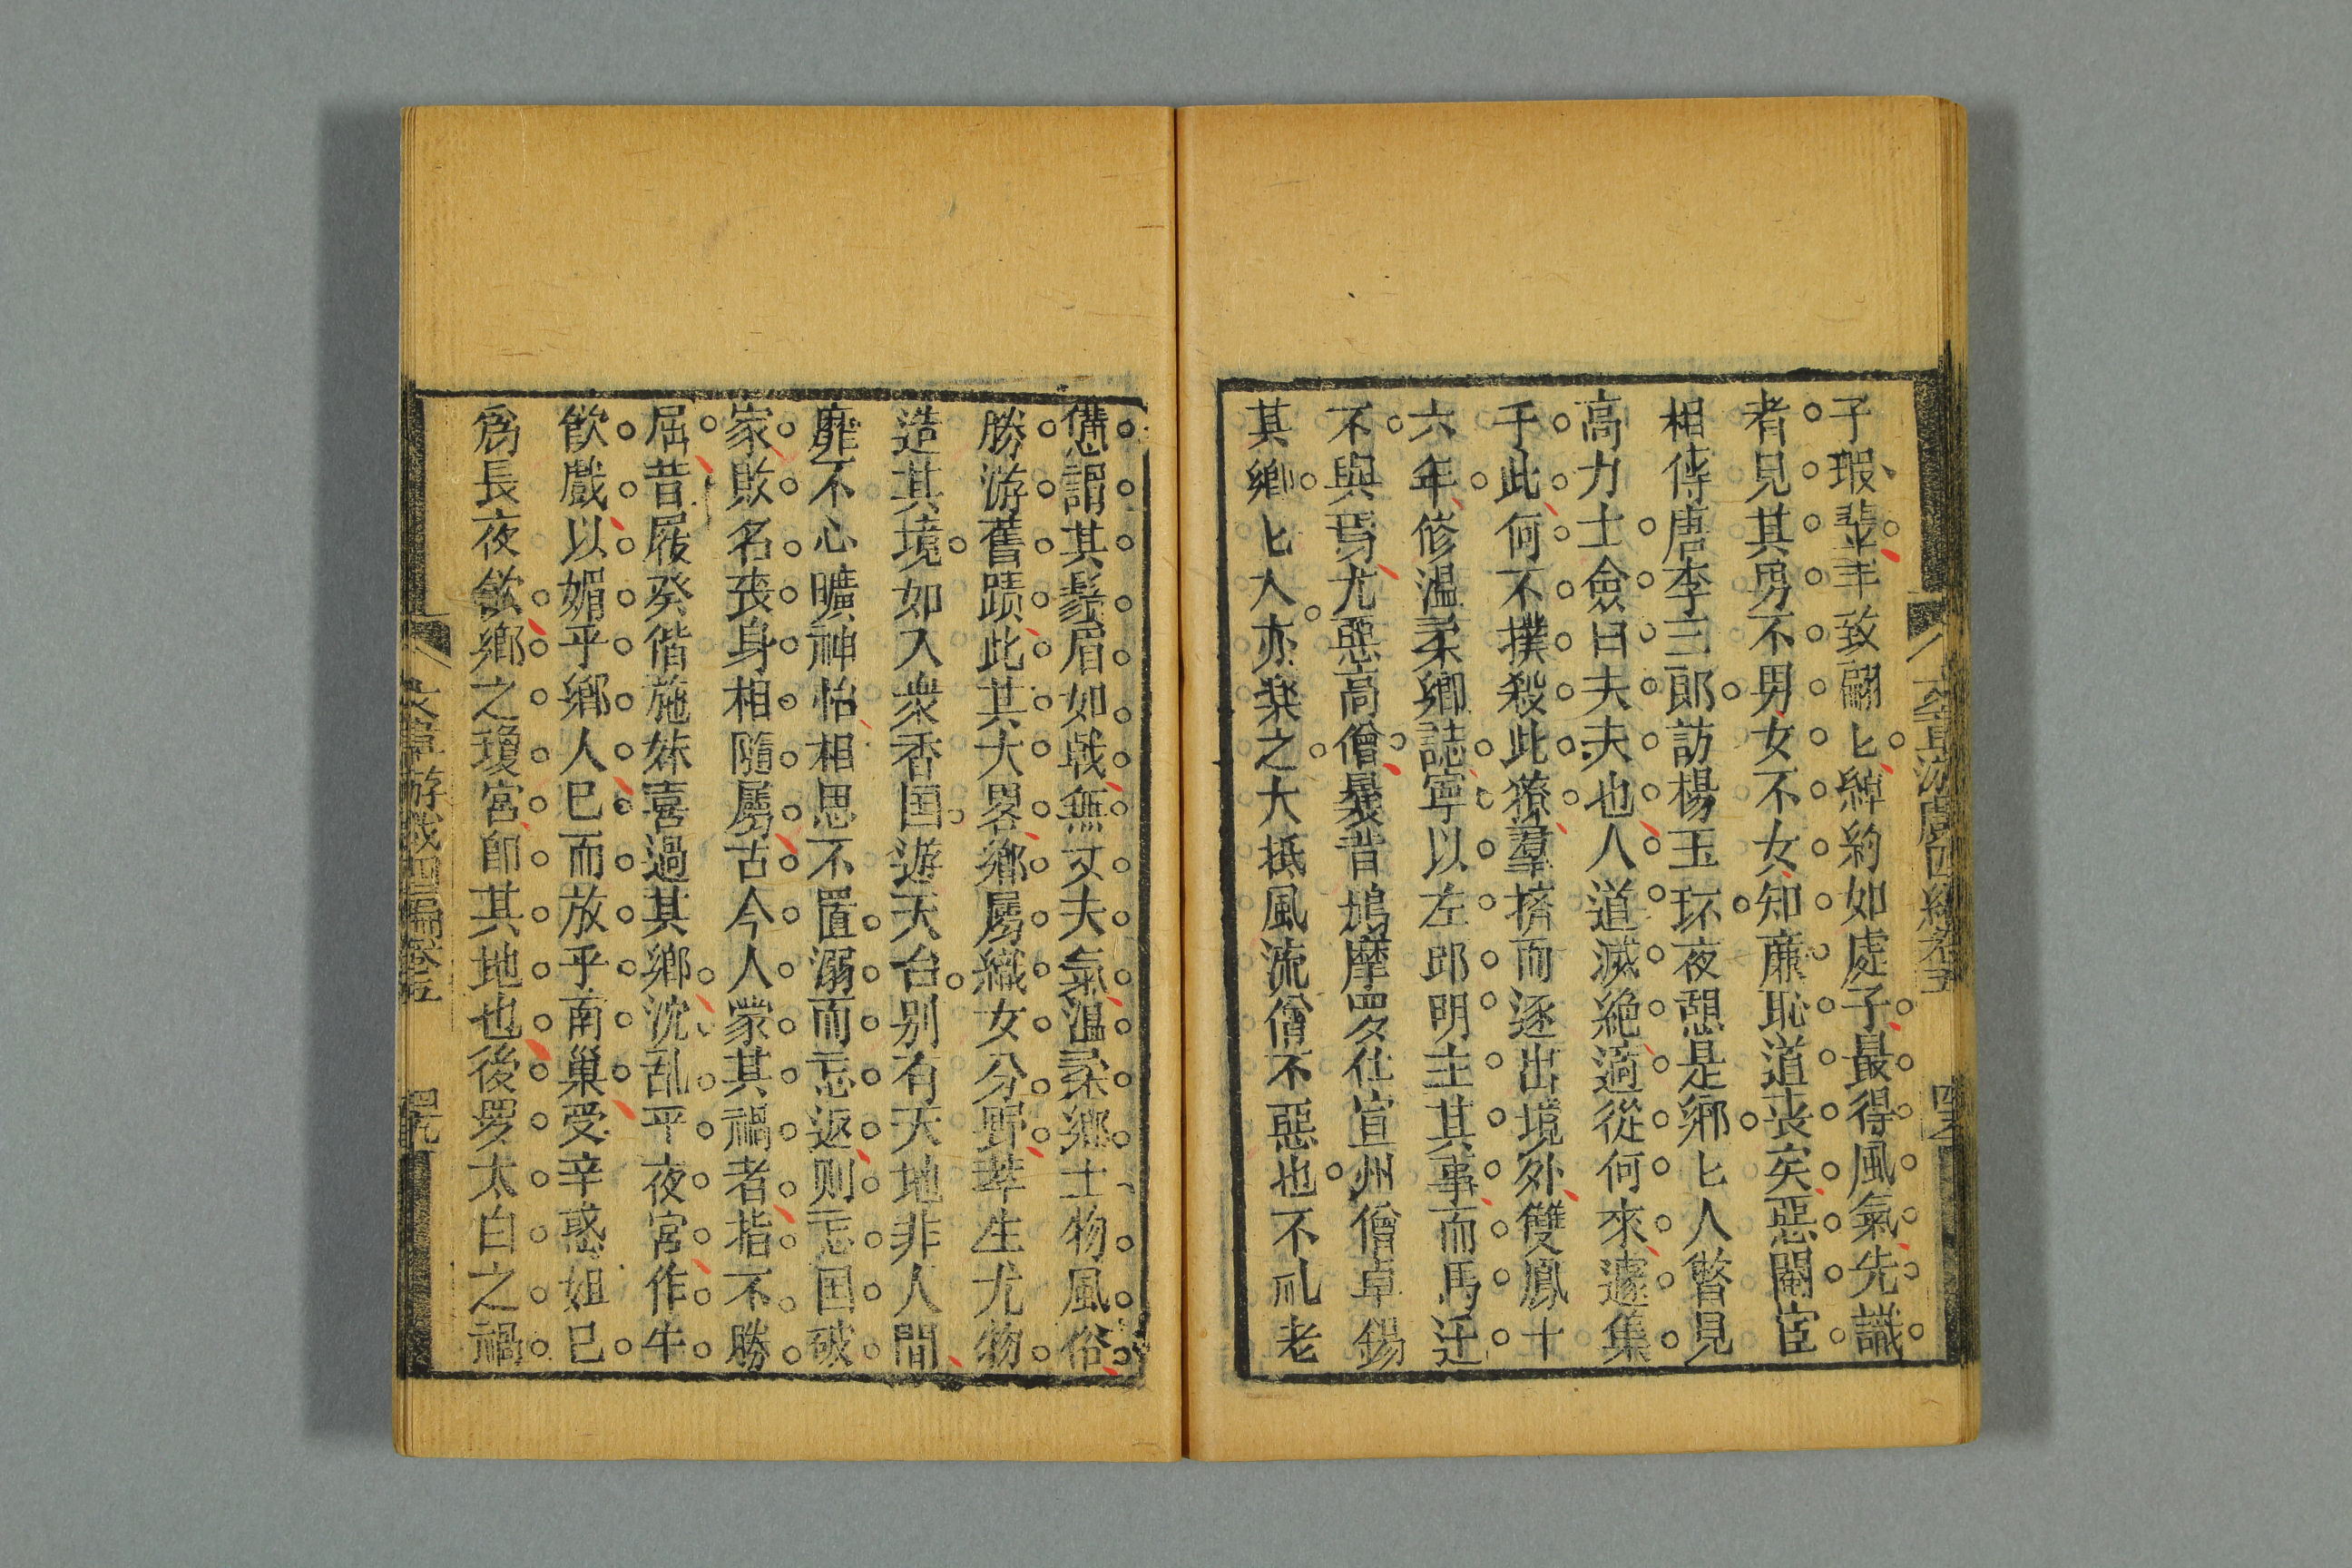 子瑕輩年致翩匕綽約如處子最得風氣先識
者見其男不男女不女知廉恥道丧矣惡閹宦
相傳唐李三郎訪楊玉环夜憩是鄉匕人瞥見
高力士僉曰夫夫也人道滅絶適從何來遽集
于此何不撲殺此獠羣擠而逐出境外雙鳳十
六年修溫柔鄉誌寧以左郎明主其事而馬迁
不與焉尤惡高僧曇昔鳩摩罗仕宣州僧卓錫
其鄉匕人亦楽之大抵風流僧不惡也不礼老
憊謂其鬚眉如戟無丈夫氣溫柔鄉土物風俗
勝游舊蹟此其大畧鄉屬織女分野萃生尤物
造其境如入衆香国遊天台别有天地非人間
靡不心曠神怡相思不置溺而忘返则忘国破
家敗名丧身相隨屬古今人蒙其禍者指不勝
屈昔履癸偕施妹喜過其鄉沈乱平夜宮作牛
飲戲以媚乎鄉人已而放乎南巢受辛惑妲己
爲長夜飲鄉之瓊宮卽其地也後罗太白之禍
文章游戲四編卷五